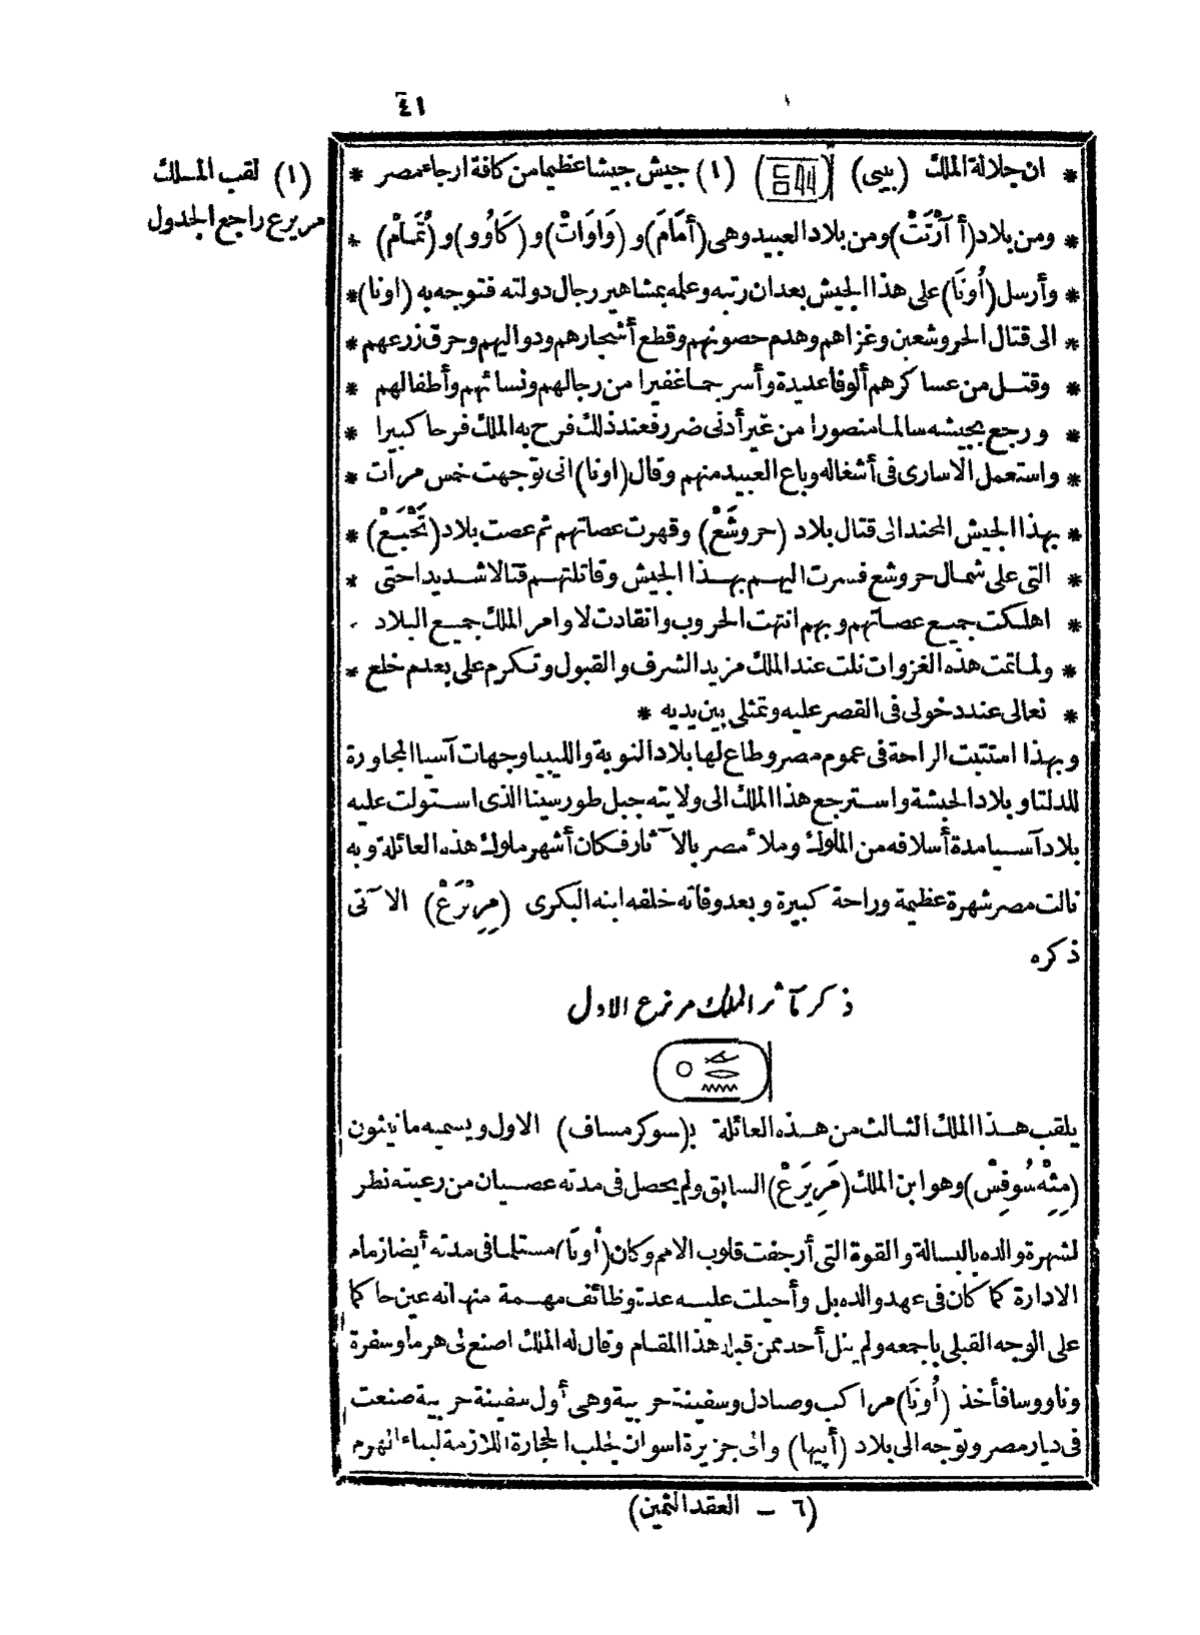 ٤١
* ان جلالة الملك (بيبى) ( ) (١) جيش جيشا عظيما من كافة ارجاء مصر *
(١) لقب الملك
مريرع راجع الجدول
* ومن بلاد (أ آرْتَتْ) ومن بلاد العبيد وهى (أمَامَ) و (وَاوَاتْ) و (كَاوُو) و (تُتَمامْ) *
* وأرسل (أُونَا) على هذا الجيش بعد ان رتبه وعلمه بمشاهير رجال دولته فتوجه به (اونا) *
* الى قتال الحروشعين وغزاهم وهدم حصونهم وقطع أشجارهم ودواليهم وحرق زرعهم *
* وقتل من عساكرهم ألوفا عديدة وأسر جما غفيرا من رجالهم ونسائهم وأطفالهم *
* ورجع بجيشه سالما منصورا من غير أدنى ضرر فعند ذلك فرح به الملك فرحا كبيرا *
* واستعمل الاسارى فى أشغاله وباع العبيد منهم وقال (اونا) انى توجهت خمس مرات *
* بهذا الجيش المجند الى قتال بلاد (حروشَعْ) وقهرت عصاتهم ثم عصت بلاد (تَخْبَعْ) *
* التى على شمال حروشع فسرت اليهم بهذا الجيش وقاتلتهم قتالا شديدا حتى *
* اهلكت جميع عصاتهم وبهم انتهت الحروب وانقادت لاوامر الملك جميع البلاد
* ولما تمت هذه الغزوات نلت عند الملك مزيد الشرف والقبول وتكرم على بعدم خلع *
* نعالى عند دخولى فى القصر عليه وتمثلى بين يديه *
وبهذا استتبت الراحة فى عموم مصر وطاع لها بلاد النوبة والليبيا وجهات آسيا المجاورة
للدلتا وبلاد الحبشة واسترجع هذا الملك الى ولايته جبل طور سينا الذى استولت عليه
بلاد آسيا مدة أسلافه من الملوك وملأ مصر بالآثار فكان أشهر ملوك هذه العائلة وبه
نالت مصر شهرة عظيمة وراحة كبيرة وبعد وفاته خلفه ابنه البكرى (مِرِنْرَعْ) الآتى
ذكره
ذكر مآثر الملك مرنرع الاول
يلقب هذا الملك الثالث من هذه العائلة بـ(سوكر مساف) الاول ويسميه مانيثون
(مِثِهْسُوفِسْ) وهو ابن الملك (مَرِيرَعْ) السابق ولم يحصل فى مدته عصيان من رعيته نظر
لشهرة والده بالبسالة والقوة التى أرجفت قلوب الامم وكان (أُونَا) مستلما فى مدته أيضا زمام
الادارة كما كان فى عهد والده بل وأحيلت عليه عدة وظائف مهمة منها انه عين حاكما
على الوجه القبلى باجمعه ولم ينل أحد ممن قبله هذا المقام وقال له الملك اصنع لى هرما وسفرة
وناووسا فأخذ (أُونَا) مراكب وصنادل وسفينة حربية وهى أول سفينة حربية صنعت
فى ديار مصر وتوجه الى بلاد (أبيها) والى جزيرة اسوان لجلب الحجارة اللازمة لبناء الهرم
(٦ – العقد الثمين)